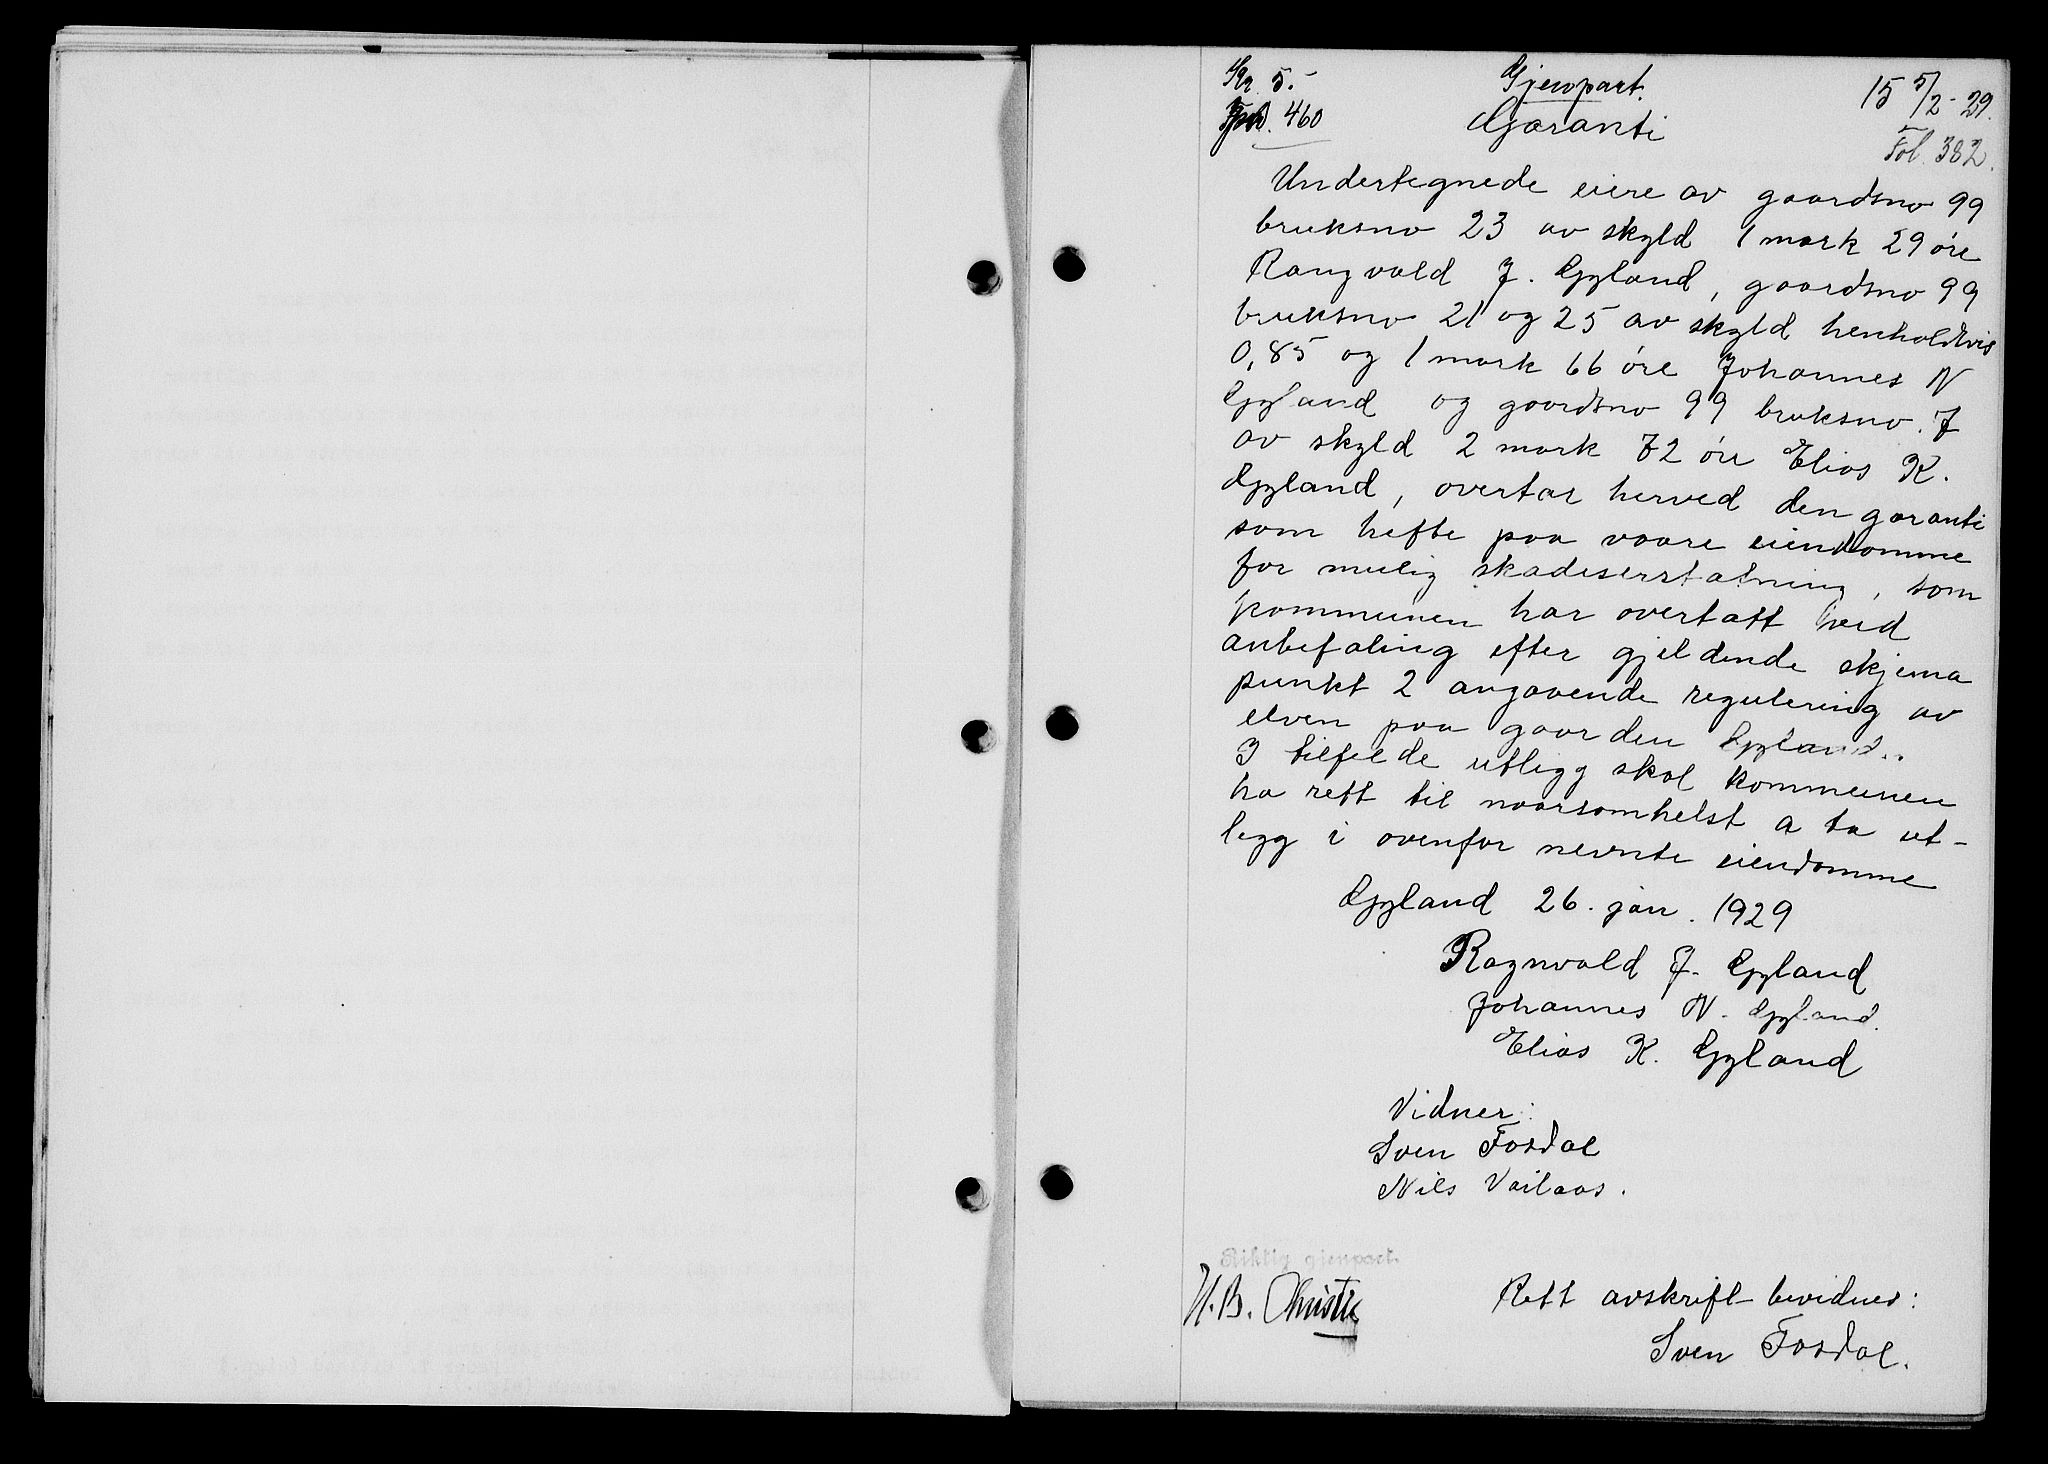 Kr. 5.-
Gjenpart.
15 5/2-29.
460
Garanti
Fol. 382.
Undertegnede eiere av gaardsno 99
bruksno 23 av skyld 1 mark 29 øre
Rangvald J. Gyland, gaardsno 99
bruksno 21 og 25 av skyld henholdtvis
0,85 og 1 mark 66 øre Johannes N
Gyland og gaardsno 99 bruksno. 7
av skyld 2 mark 72 øre Elias K.
Gyland, overtar herved den garanti
som hefte paa vaare eiendomme
for mulig skadeserstatning, som
kommunen har overtatt ved
anbefaling efter gjeldende skjema
punkt 2 angaaende regulering av
elven paa gaarden Gyland.
I tilfelde utlegg skal kommunen
ha rett til naarsomhelst a ta ut-
legg i ovenfor nevnte eiendomme
Gyland 26. jan. 1929
Ragnvald J. Gyland
Johannes N. Gyland.
Elias K. Gyland
Vidner:
Sven Fosdal
Nils Vailaas.
Riktig gjenpart.
H.B. Christie
Rett avskrift bevidnes:
Sven Fosdal.